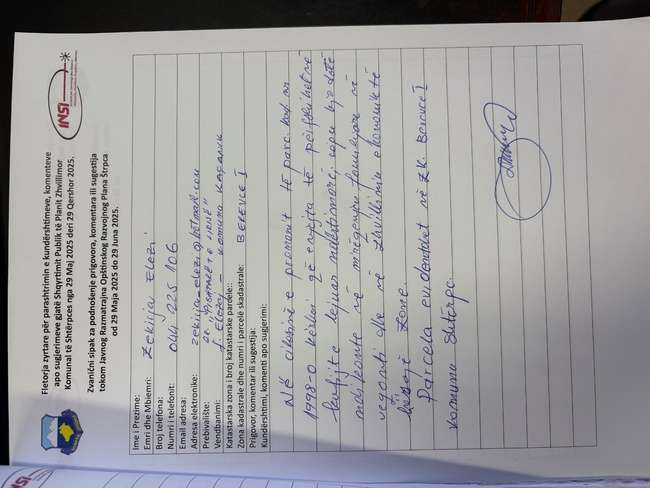 INSI
Fletorja zyrtare për parashtrimin e kundërshtimeve, komenteve
apo sugjerimeve gjatë Shqyrtimit Publik të Planit Zhvillimor
Komunal të Shtërpces nga 29 Maj 2025 deri 29 Qershor 2025.
Zvanični sipak za podnošenje prigovora, komentara ili sugestija
tokom Javnog Razmatrajna Opštinskog Razvojnog Plana Štrpca
od 29 Maja 2025 do 29 Juna 2025.
Ime i Prezime:
Emri dhe Mbiemri: Zekirja Elezi
Broj telefona:
Numri i telefonit: 044 225 106
Email adresa:
Adresa elektronike: zekirja-elezi@hotmail.com
Prebivalište:
Vendbanimi: f. Elezaj - Komuna Kaçanik
Katastarska zona i broj katastarske parcele:
Zona kadastrale dhe numri i parcelë skadastrale: BEREVCE I
Prigovor, komentar ili sugestija:
Kundërshtimi, komenti apo sugjerimi:
Në cilësinë e pronarit të parc. kad nr
1998-0 kërkoj që ceshtja të përfshihet në
lejuar ndërtimore, sepse kjo do të
ndikonte në mirëqenje familjare në
veçanti dhe në zhvillimin ekonomik të
kësaj zone.
Parcela evidentohet në ZK. Berevce I
komuna Shterpc.